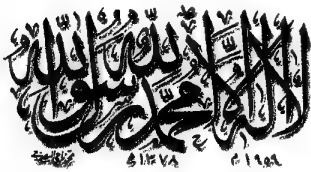 لا إله إلا الله محمد رسول الله
١٣٧٨